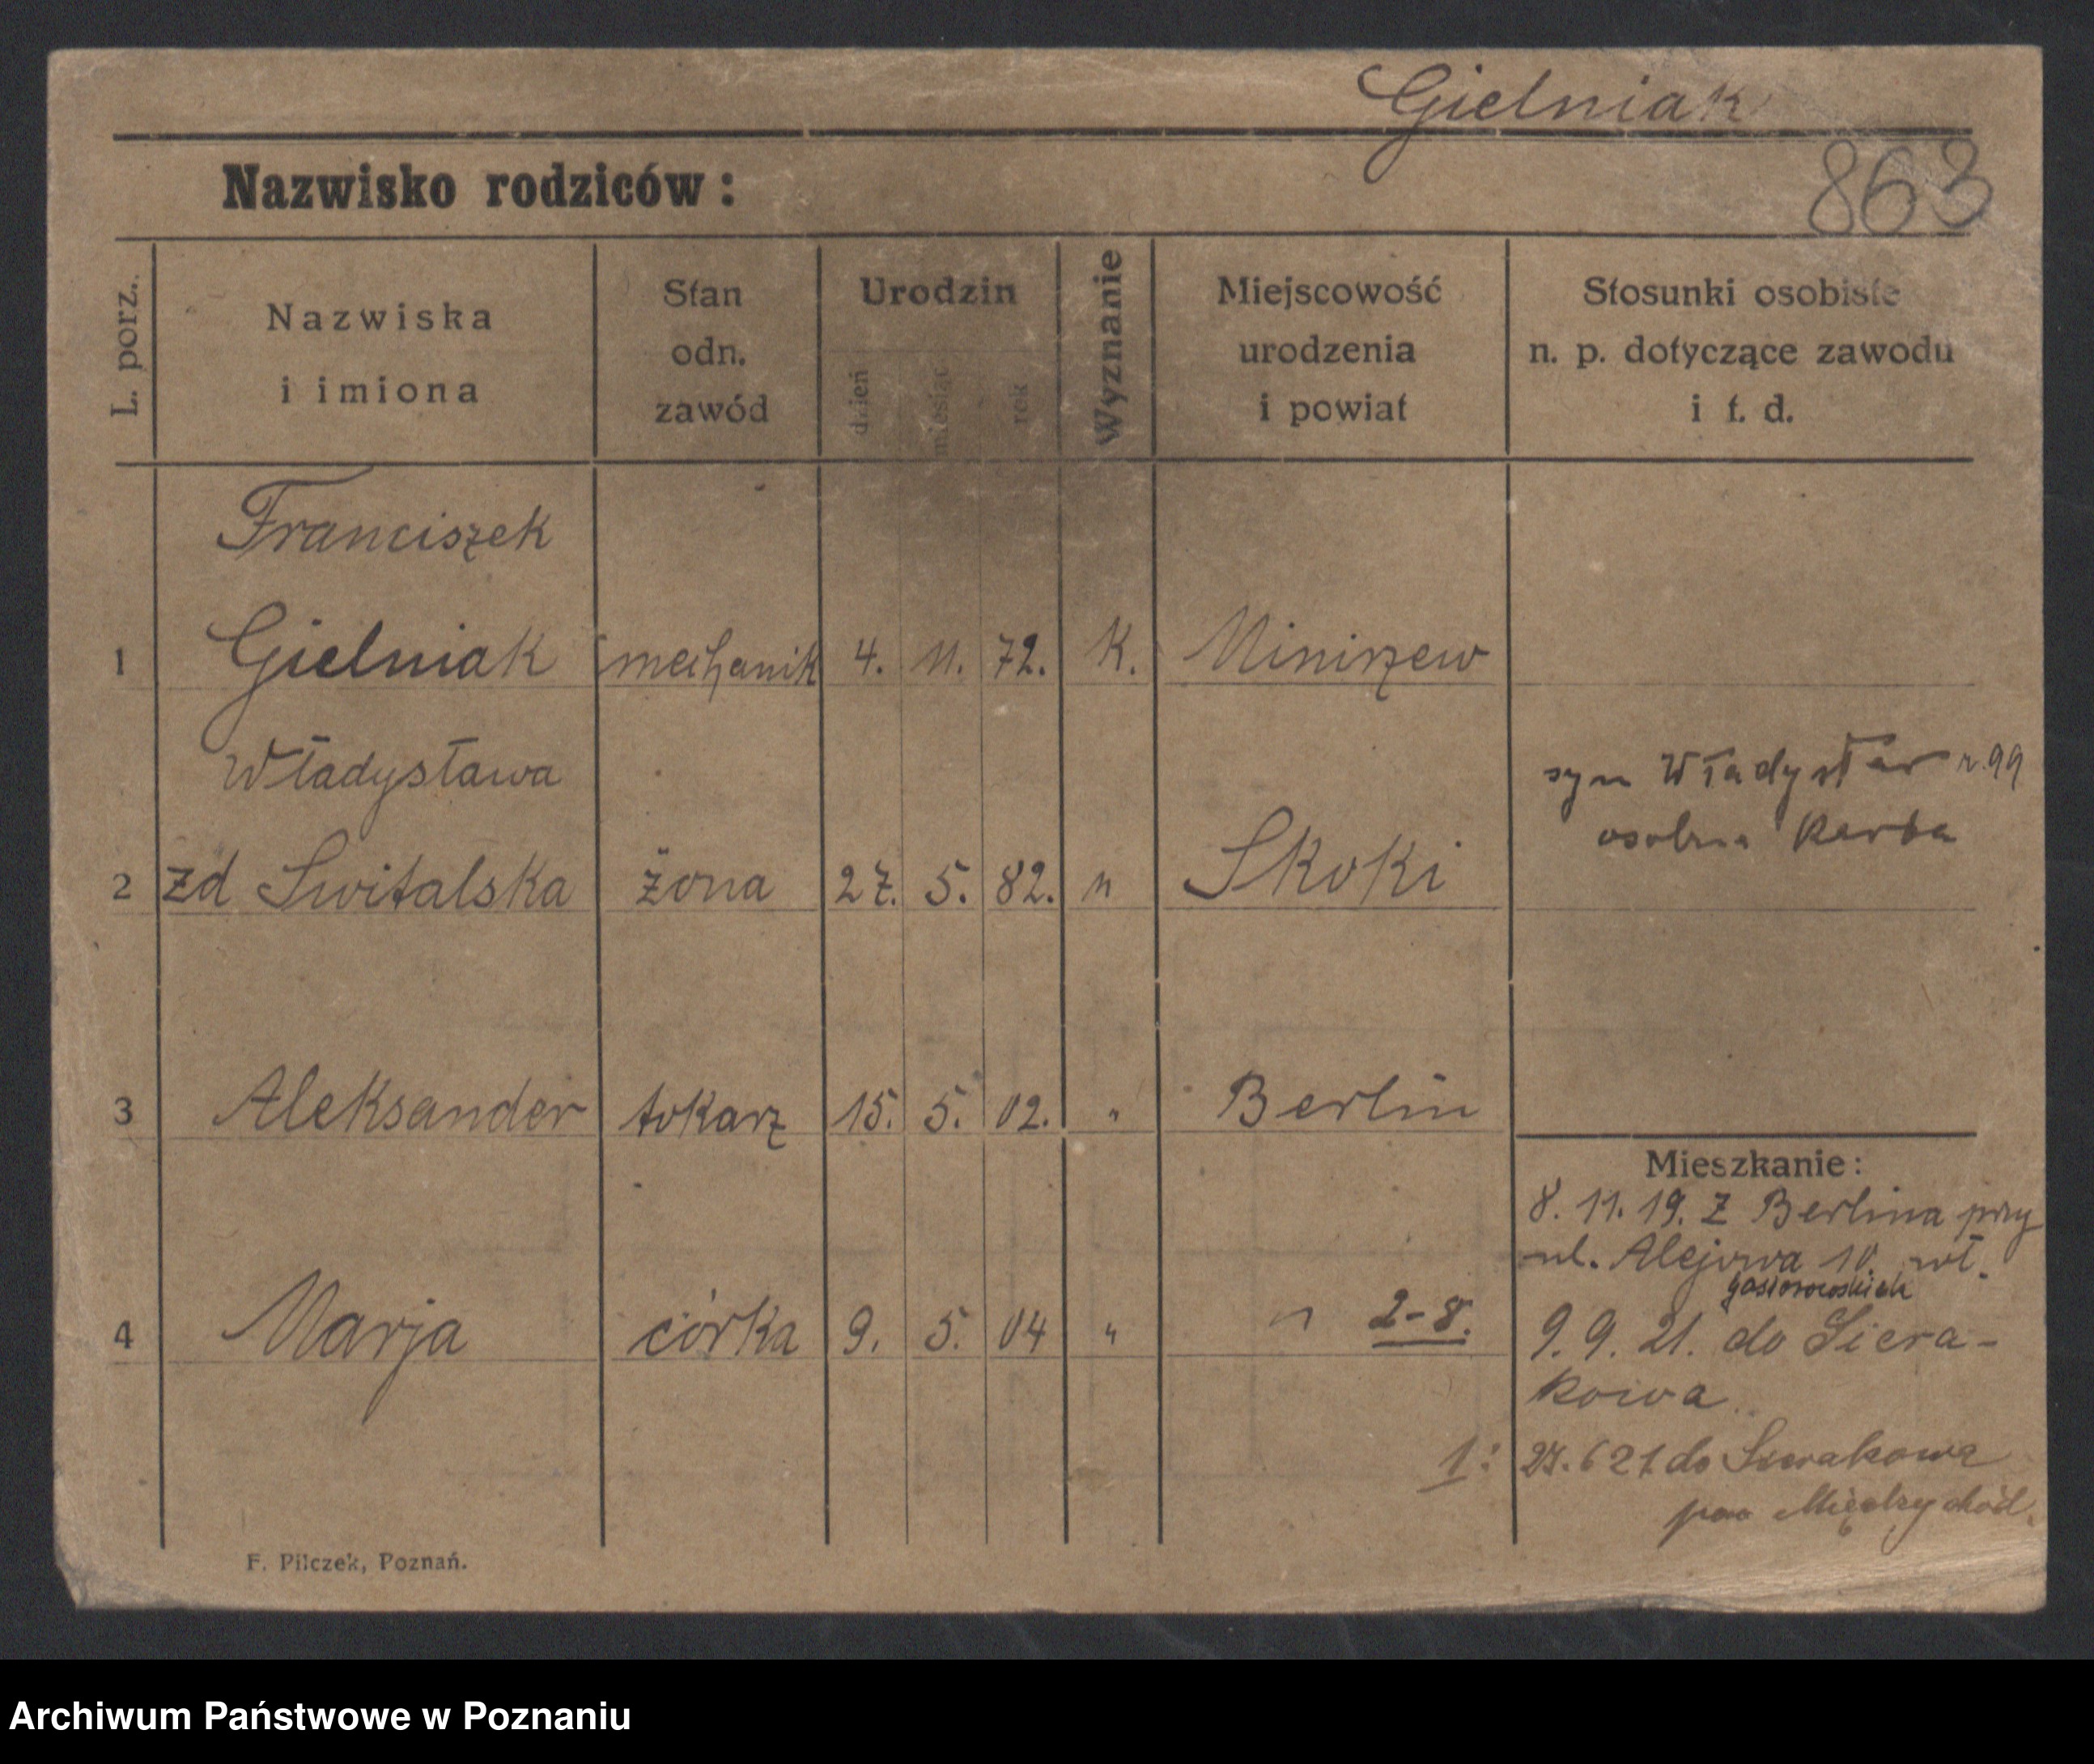 Gielniak
Nazwisko rodziców:
863
L. porz.
Nazwiska
i imiona
Stan
odn.
zawód
Urodzin
dzień
miesiąc
rok
Wyznanie
Miejscowość
urodzenia
i powiat
Stosunki osobiste
n. p. dotyczące zawodu
i t. d.
Franciszek
1 Gielniak mechanik 4. 11. 72. K. Miniszew
Władysława
syn Władysław r. 99
osobna Karta
2 zd Switalska żona 27. 5. 82. " Skoki
3 Aleksander tokarz 15. 5. 02. " Berlin
4 Marja córka 9. 5. 04 " " 2-8.
Mieszkanie:
8. 11. 19. z Berlina przy
ul. Alejowa 10. wł.
9. 9. 21. do Siera-
kowa
1: 27. 6 21 do Sierakowa
pow Międzychód.
F. Pilczek, Poznań.
Archiwum Państwowe w Poznaniu